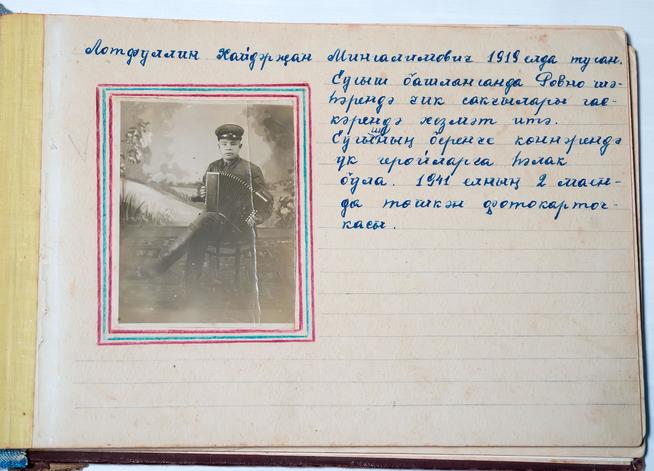 Лотфуллин Хайдәрҗан Мингалимович 1919 елда туган.
Сугыш башланганда Ровно шә-
һәрендә чик сакчылары гас-
кәрендә хезмәт итә.
Сугышның беренче көннәрендә
үк геройларга һәлак
була. 1941 елның 2 маен-
да төшкән фотокарточ-
касы.